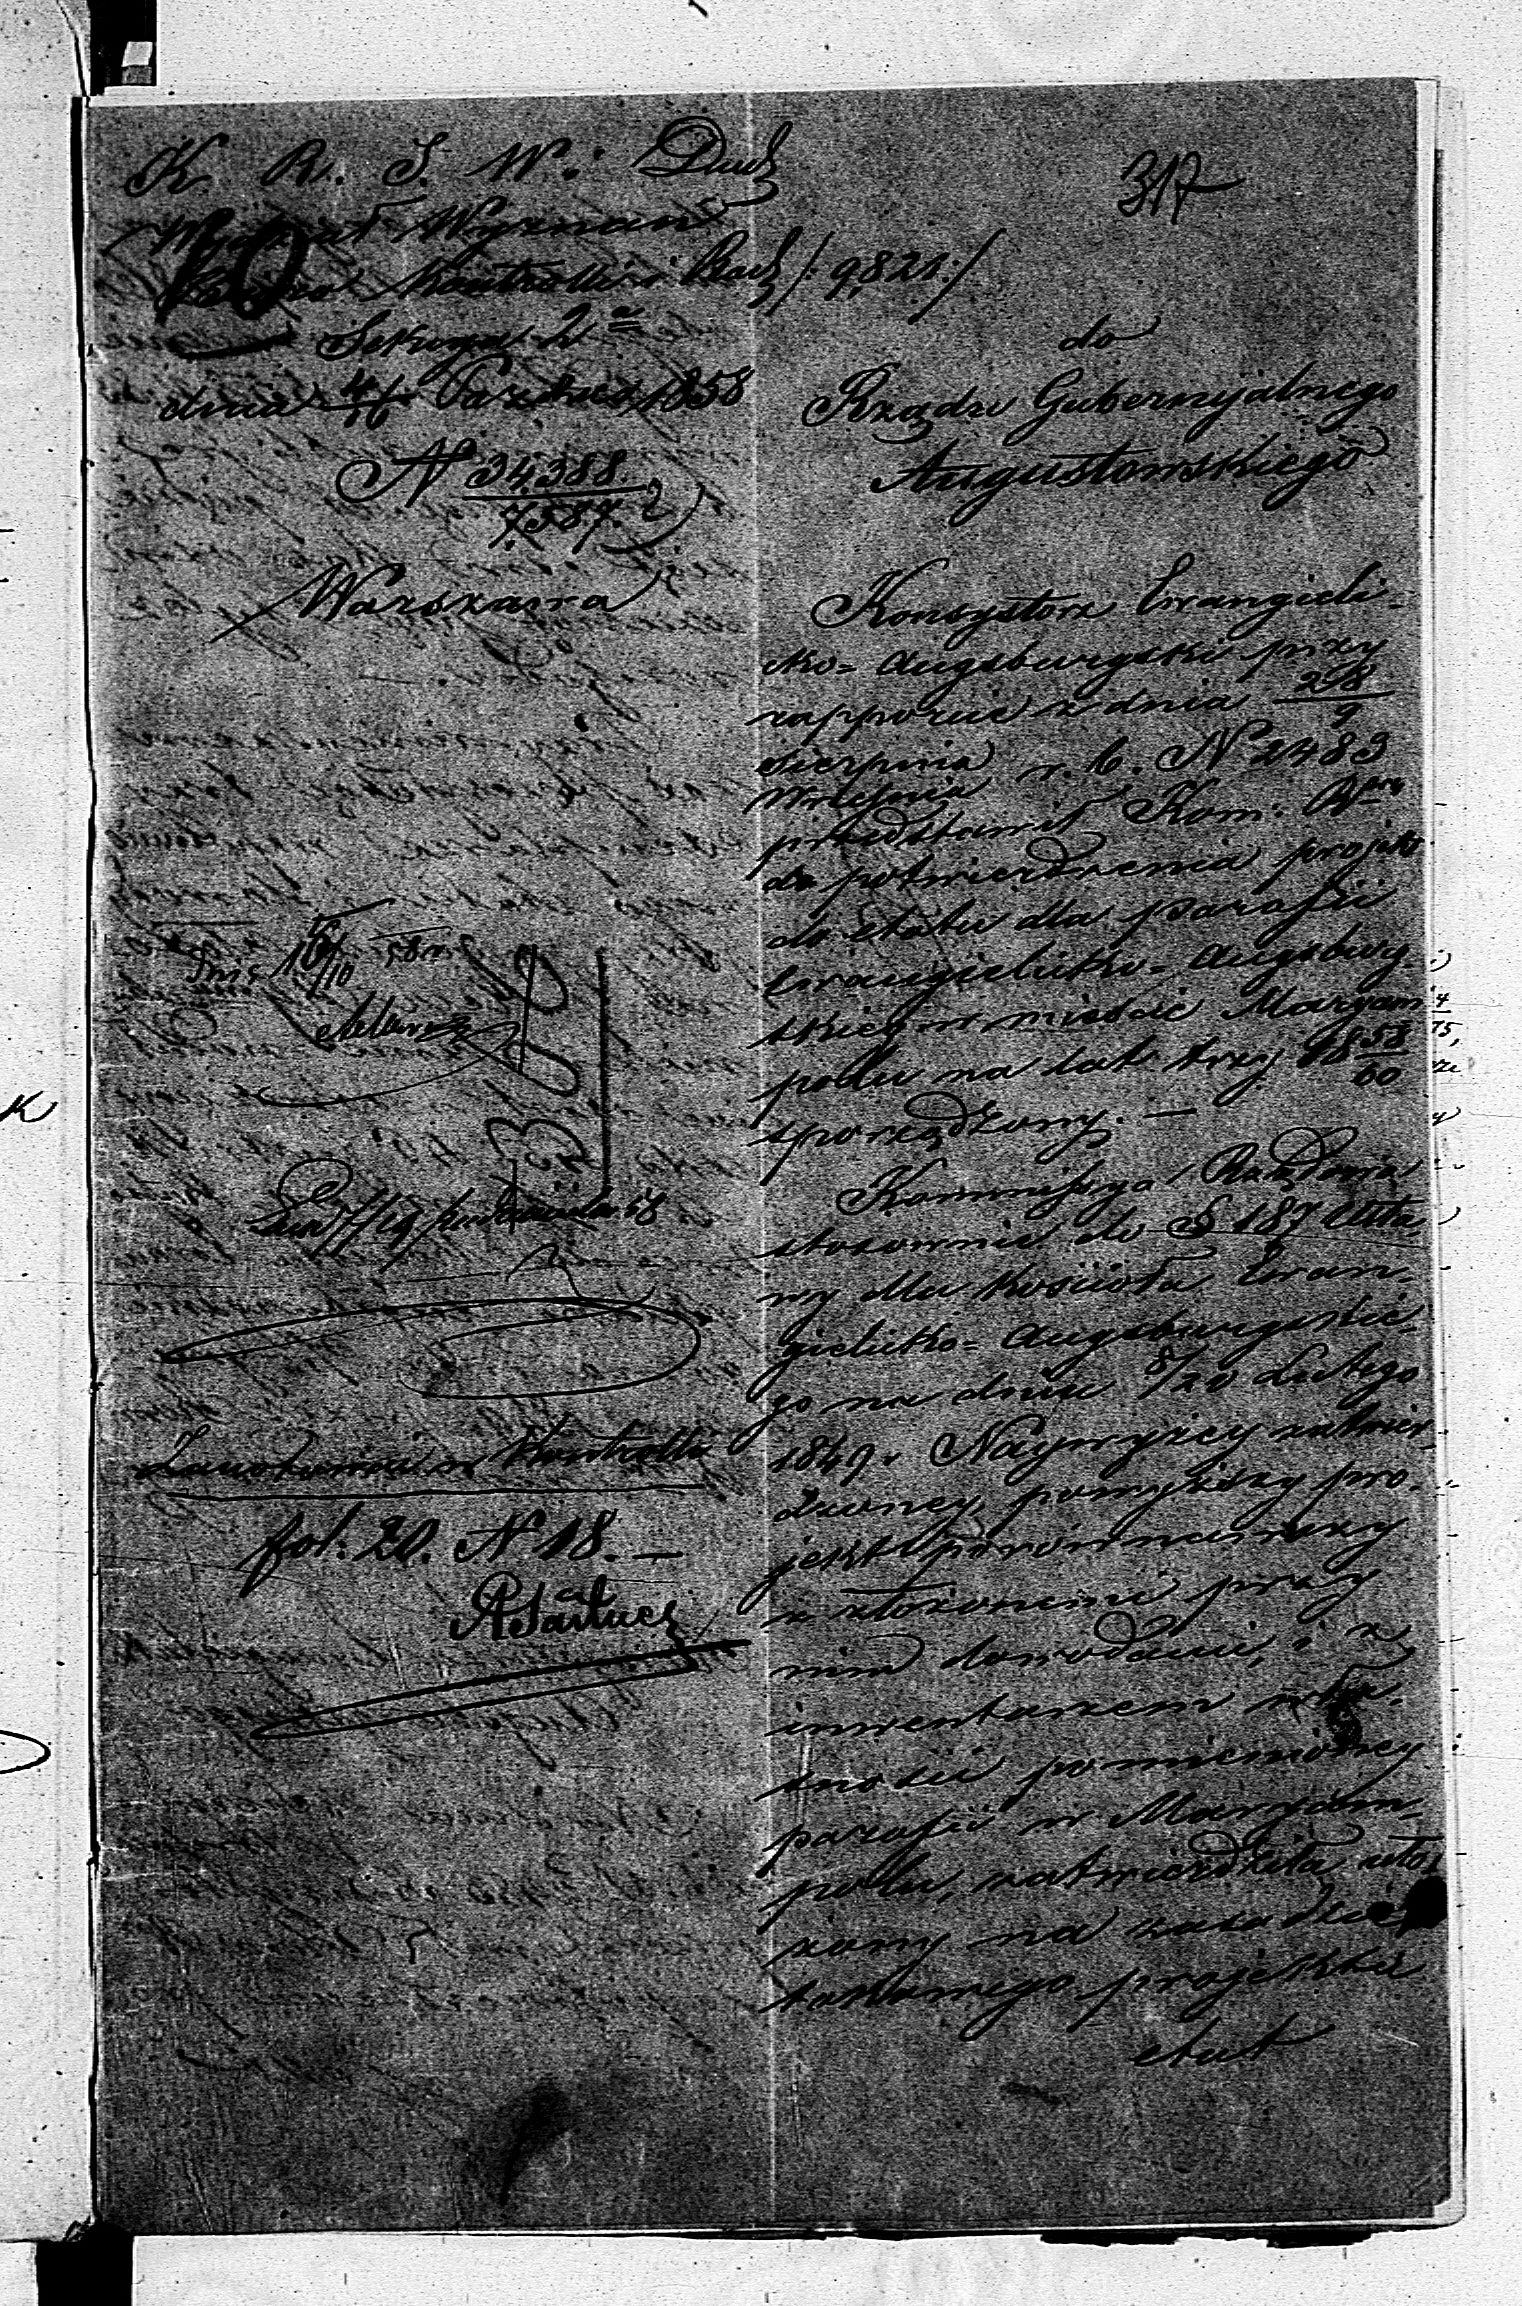 K. R. S. W. i Duch
317
Wydział Wyznań
Biuro Kontrolli i Rach /: 9,821 :/
Sekcya 2a
dnia 4/16 Paźdz 1858
N 34388
7587
Warszawa
do
Rządu Gubernyjalnego
Augustowskiego
Konsystorz Ewangieli-
cko=Augsburgski przy
rapporcie z dnia 28/9
Sierpnia
Września r. b. N 2483
przedstawił Kom: Rz
do potwierdzenia projekt
do etatu dla parafii
Ewangielicko=Augsburg-
skiej w mieście Maryam-
polu na lat trzy 1858/60
sporządzony. —
Kommissya Rządowa
stosownie do § 187 Usta-
wy dla Kościoła Ewan-
gielicko=Augsburgskie-
go na dniu 8/20 Lutego
1849 r. Najwyżey zatwier-
dzoney, powyższy pro-
jekt porównawszy
z złożonemi przy
nim dowodami, i z
inwentarzem wła-
sności pomienioney
parafii w Maryam-
polu, zatwierdziła uło-
żony na zasadzie
takowego projektu
etat
16/10 58 r.
Zanotowano w Kontrolli
fol: 20. N 18. —